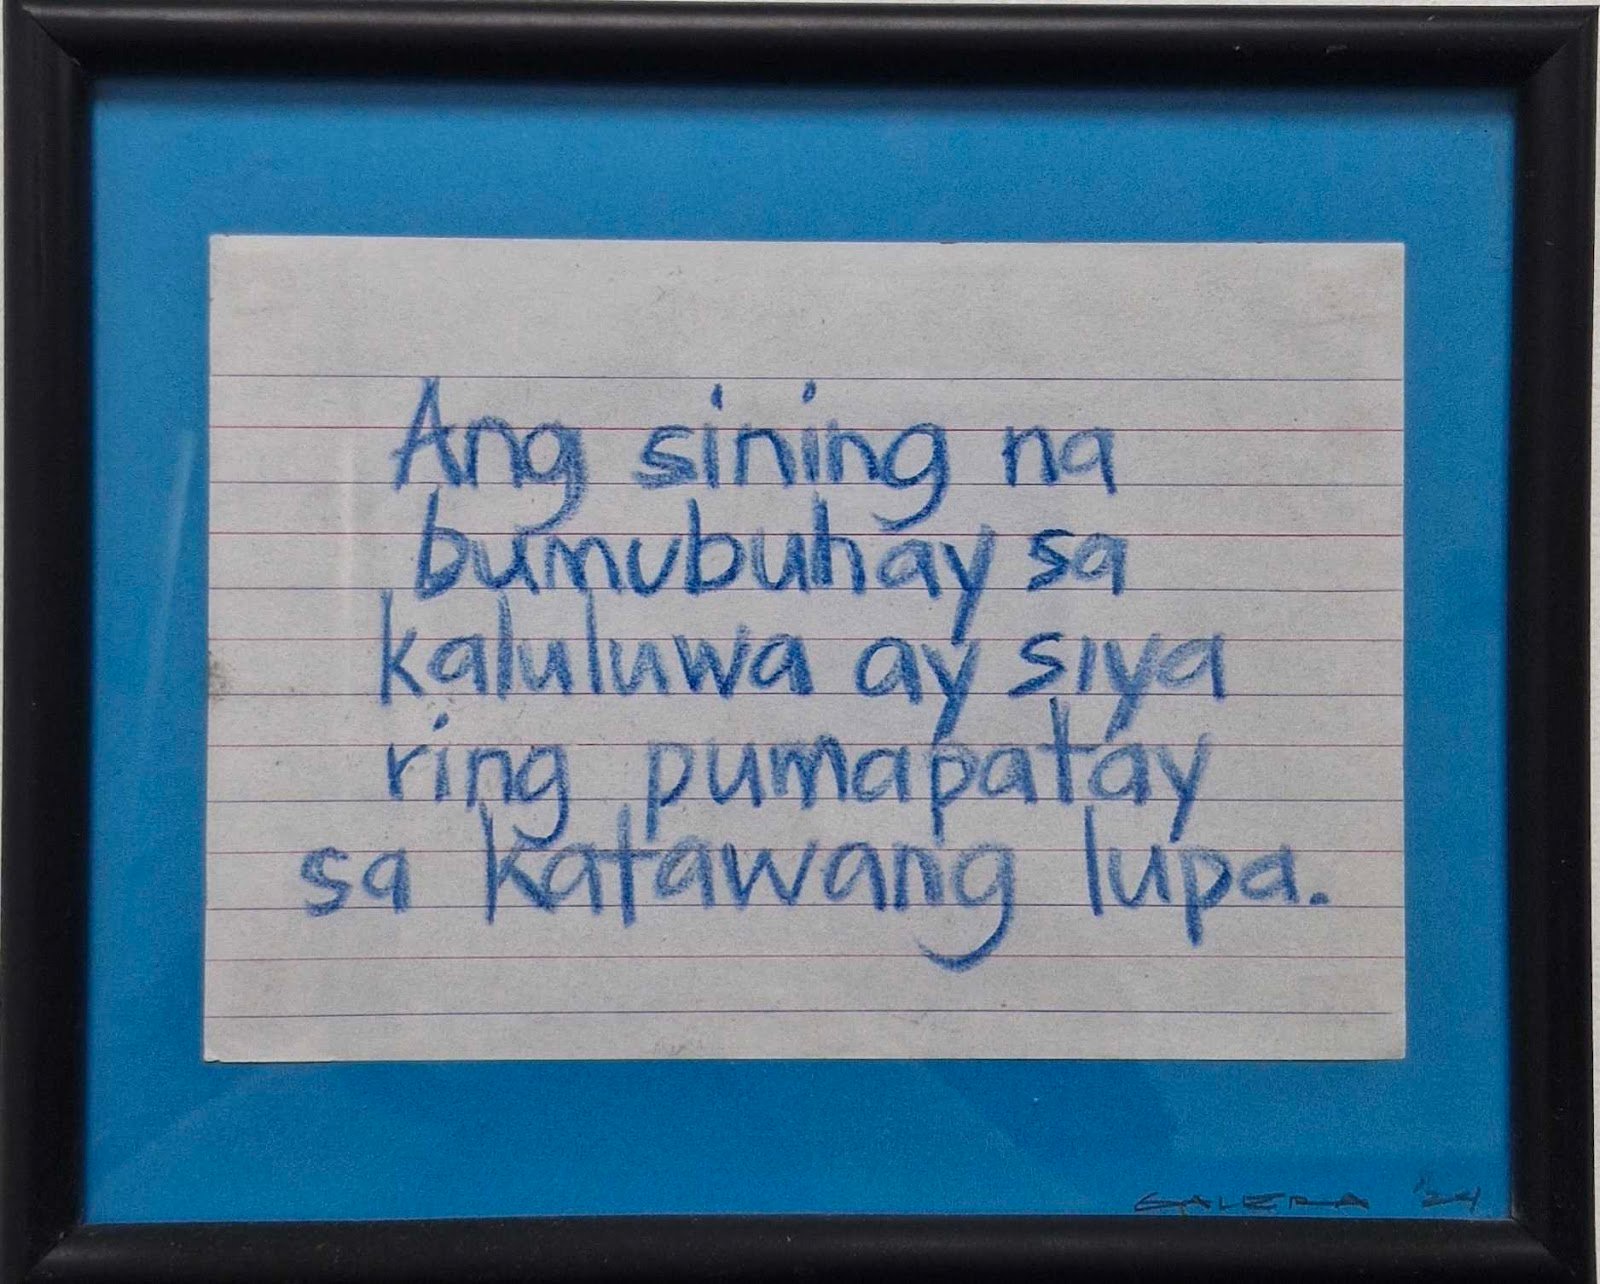 Ang sining na
bumubuhay sa
kaluluwa ay siya
ring pumapatay
sa katawang lupa.
GALERA '24